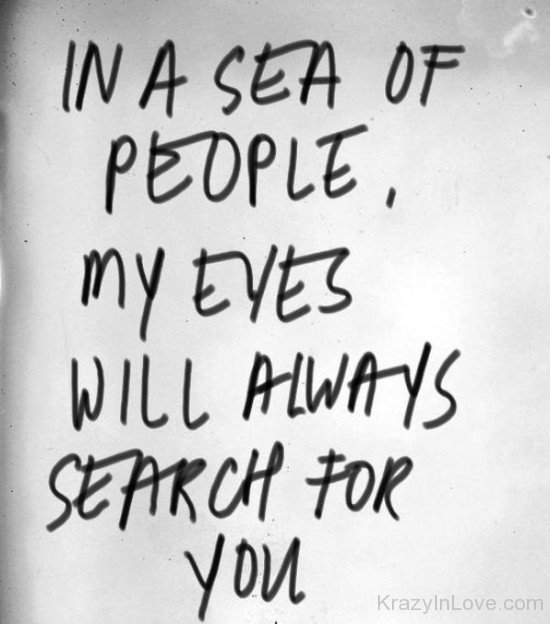 IN A SEA OF
PEOPLE,
MY EYES
WILL ALWAYS
SEARCH FOR
YOU
KrazyInLove.com